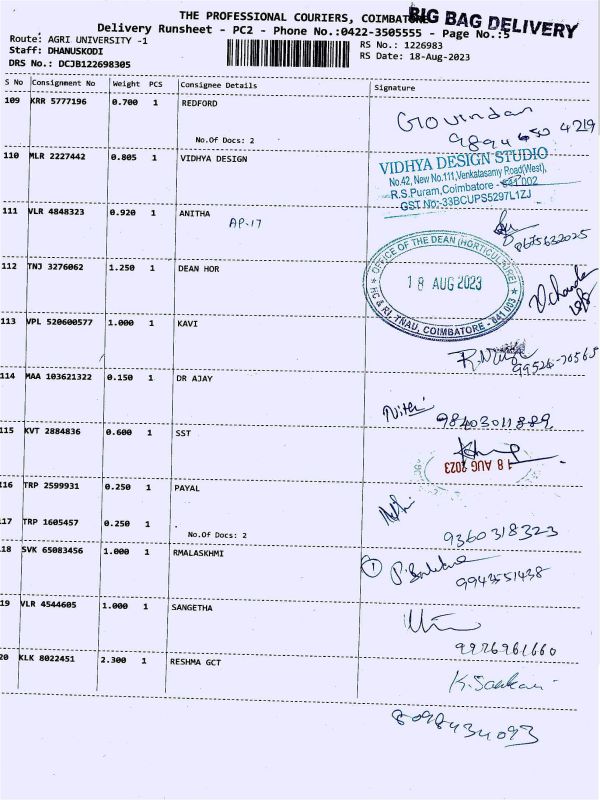 THE PROFESSIONAL COURIERS, COIMBATORE
BIG BAG DELIVERY
Delivery Runsheet - PC2 - Phone No.:0422-3505555 - Page No.:5
Route: AGRI UNIVERSITY -1
RS No.: 1226983
Staff: DHANUSKODI
RS Date: 18-Aug-2023
DRS No.: DCJB122698305
S No Consignment No Weight PCS Consignee Details Signature
109 KRR 5777196 0.700 1 REDFORD
Govindan
No.Of Docs: 2
9894650 4219
110 MLR 2227442 0.805 1 VIDHYA DESIGN
VIDHYA DESIGN STUDIO
No.42, New No.111, Venkatasamy Road(West),
R.S.Puram, Coimbatore - 641 002
GST No:-33BCUPS5297L1ZJ
111 VLR 4848323 0.920 1 ANITHA
AP-17
8675632025
112 TNJ 3276062 1.250 1 DEAN HOR
OFFICE OF THE DEAN (HORTICULTURE)
18 AUG 2023
HC & RI, TNAU, COIMBATORE - 641 003
113 VPL 520600577 1.000 1 KAVI
99526-70565
114 MAA 103621322 0.150 1 DR AJAY
Nithi
98403011889
115 KVT 2884836 0.600 1 SST
18 AUG 2023
116 TRP 2599931 0.250 1 PAYAL
117 TRP 1605457 0.250 1
No.Of Docs: 2
9360318323
18 SVK 65083456 1.000 1 RMALASKHMI
1
9943551438
19 VLR 4544605 1.000 1 SANGETHA
9976961660
20 KLK 8022451 2.300 1 RESHMA GCT
K. Sankari
8098434093